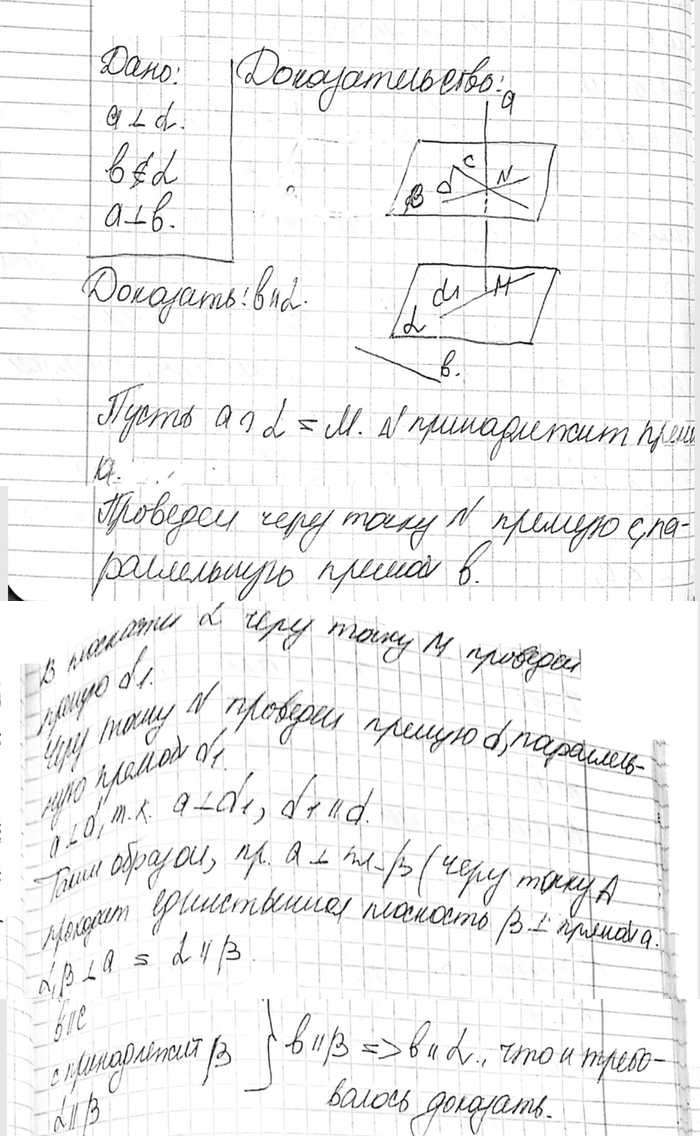 Дано: Доказательство:
a ⊥ α.
b ∉ α
a ⊥ b.
Доказать: b ∥ α.
a
c
N
d
β
d1
M
α
b.
Пусть a ∩ α = M. N принадлежит прям
a.
Проведем через точку N прямую c, па-
раллельную прямой b.
В плоскости α через точку M проведем
прямую d1.
Через точку N проведем прямую d, параллель-
ную прямой d1.
a ⊥ d, т.к. a ⊥ d1, d1 ∥ d.
Таким образом, пр. a ⊥ пл-β (через точку A
проходит единственная плоскость β ⊥ прямой a.
α, β ⊥ a = α ∥ β.
b ∥ c
c принадлежит β } b ∥ β => b ∥ α., что и требо-
α ∥ β валось доказать.